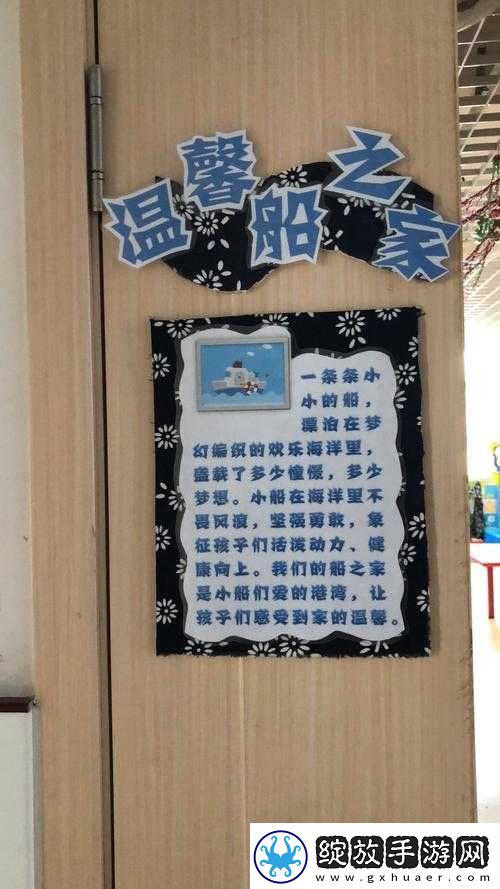 温馨船之家
一条条小
小的船，
漂泊在梦
幻编织的欢乐海洋里，
盛载了多少憧憬，多少
梦想。小船在海洋里不
畏风浪，坚强勇敢，象
征孩子们活泼动力、健
康向上。我们的船之家
是小船们爱的港湾，让
孩子们感受到家的温馨。
绽放手游网
www.gxhuaer.com